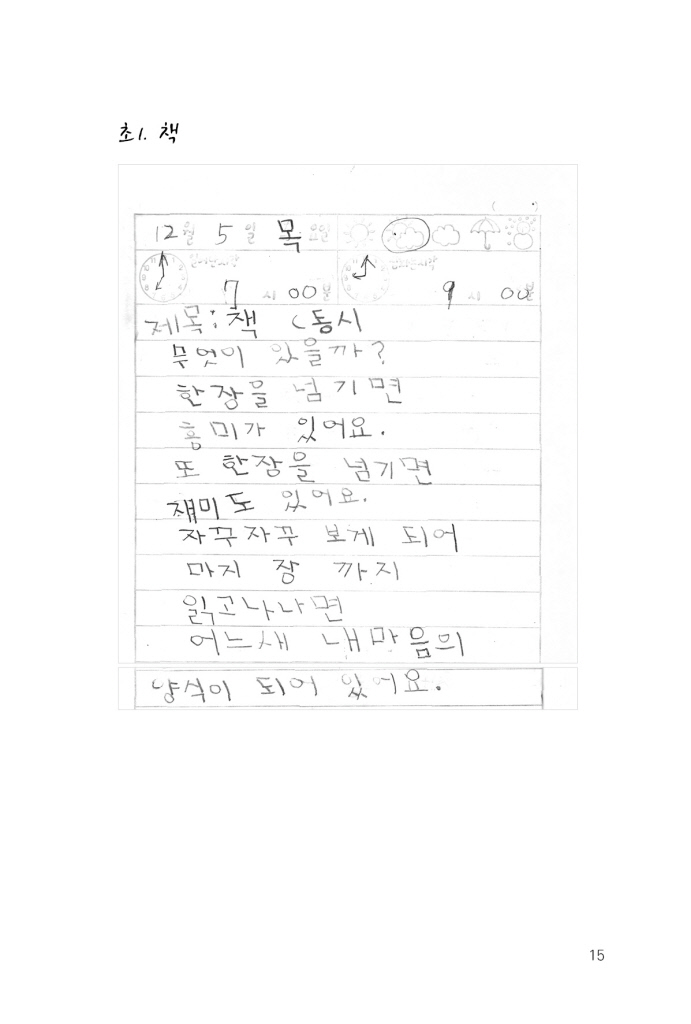 초1. 책
12월 5일 목요일
7시 00분 9시 00분
제목: 책 (동시
무엇이 있을까?
한장을 넘기면
흥미가 있어요.
또 한장을 넘기면
재미도 있어요.
자꾸자꾸 보게 되어
마지 장 까지
읽고나나면
어느새 내마음의
양식이 되어 있어요.
15